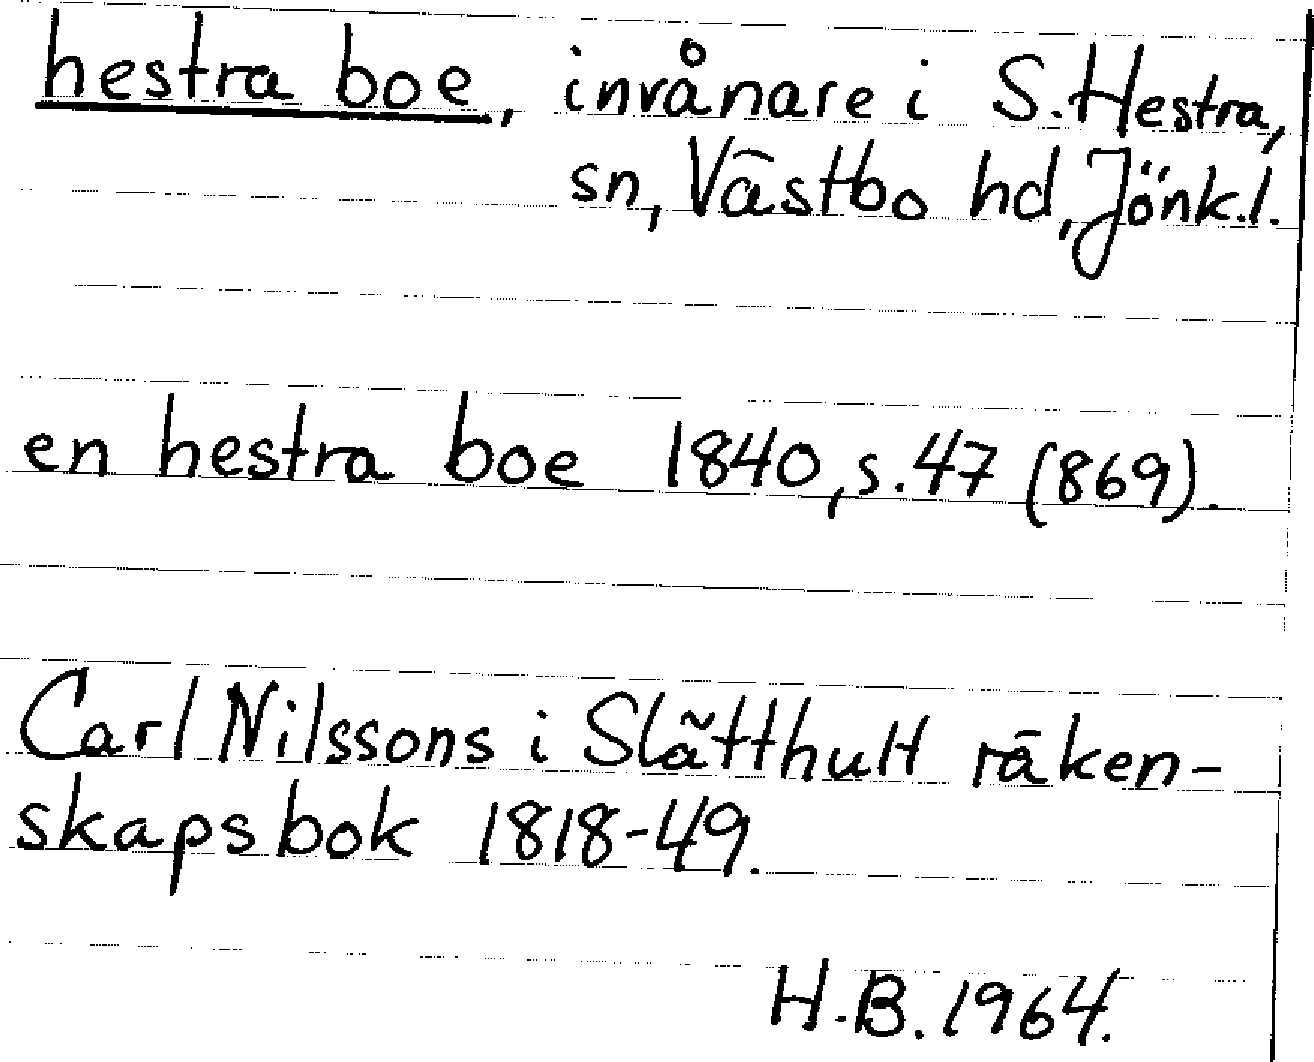 hestra boe, invånare i S. Hestra,
sn, Västbo hd, Jönk.l.
en hestra boe 1840, s. 47 (869).
Carl Nilssons i Slätthult räken-
skapsbok 1818-49.
H.B. 1964.